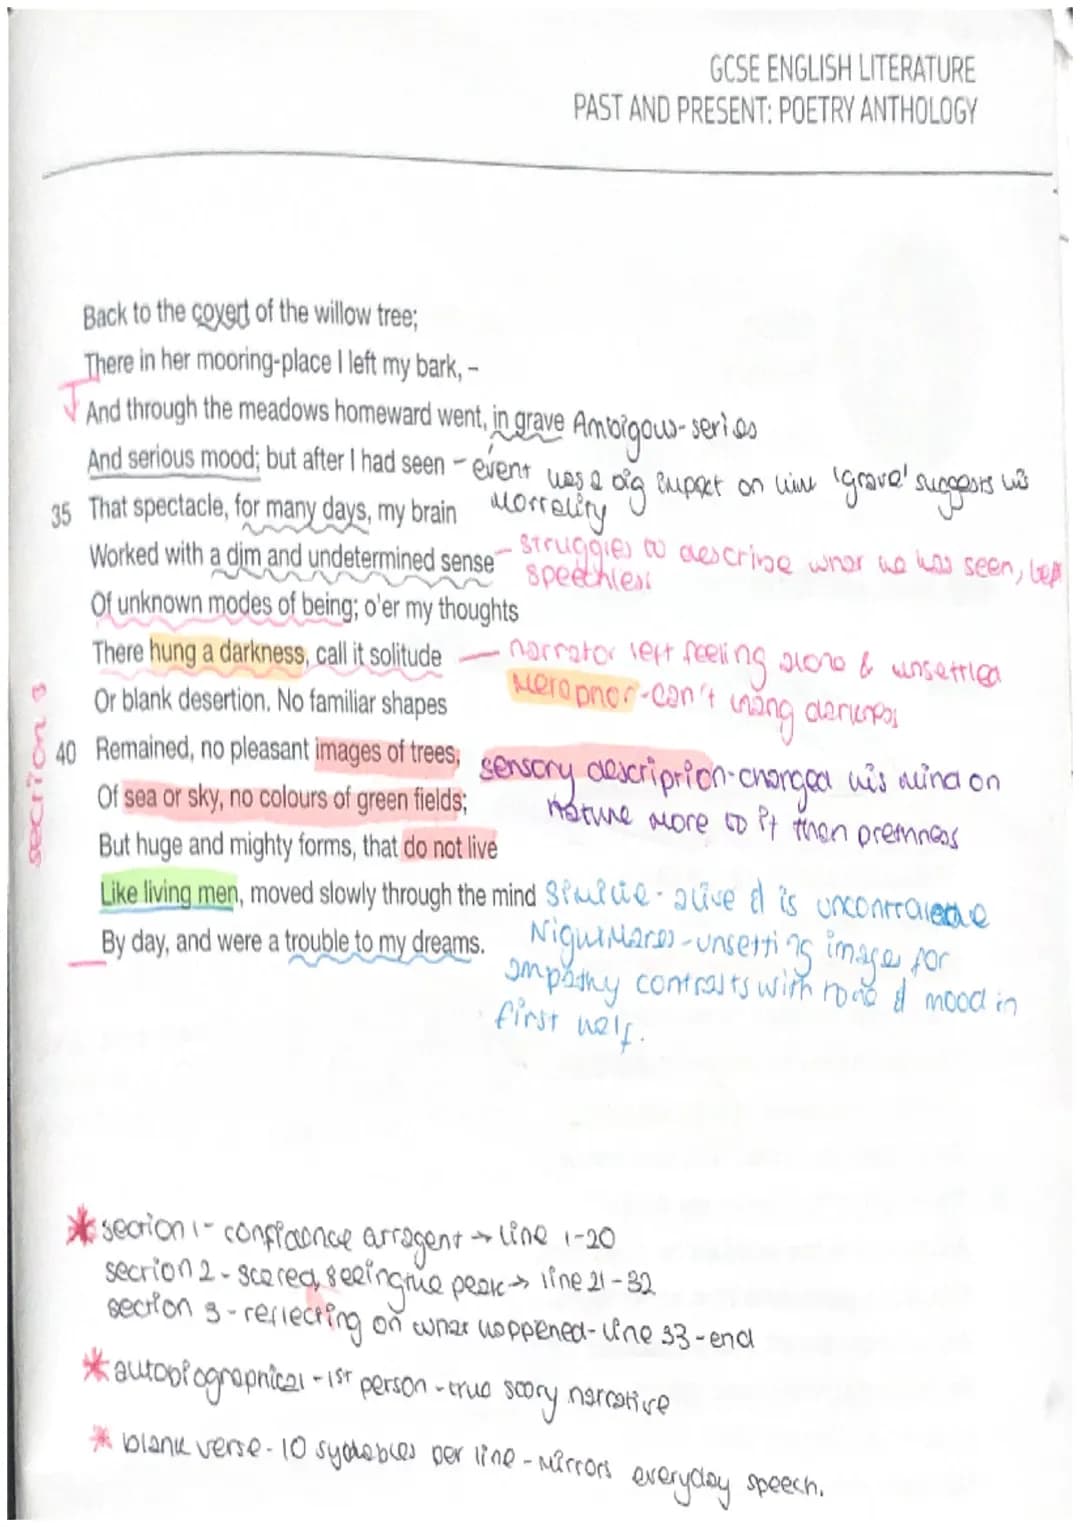 GCSE ENGLISH LITERATURE
PAST AND PRESENT: POETRY ANTHOLOGY
Back to the covert of the willow tree;
There in her mooring-place I left my bark, –
And through the meadows homeward went, in grave Ambigous - series
And serious mood; but after I had seen - event was a big impact on him 'grave' suggests his
morrality
35 That spectacle, for many days, my brain
Worked with a dim and undetermined sense - struggles to describe what he has seen, left
speechless
Of unknown modes of being; o'er my thoughts
There hung a darkness, call it solitude — narrator left feeling alone & unsettled
Metaphor - can't hang darkness
Or blank desertion. No familiar shapes
section 3
40 Remained, no pleasant images of trees,
sensory description - changed his mind on
nature more to it than
Of sea or sky, no colours of green fields;
But huge and mighty forms, that do not live
Like living men, moved slowly through the mind Similie - alive & is
By day, and were a trouble to my dreams.
Nightmares - unsetting image for
empathy contrasts with tone & mood in
first half.
* section 1 - confidence arragent → line 1-20
section 2 - scared, seeing the peak → line 21-32
section 3 - reflecting on what happened - line 33 - end
* autobiographical - 1st person - true story narrative
* blank verse - 10 syllables per line - mirrors everyday speech.